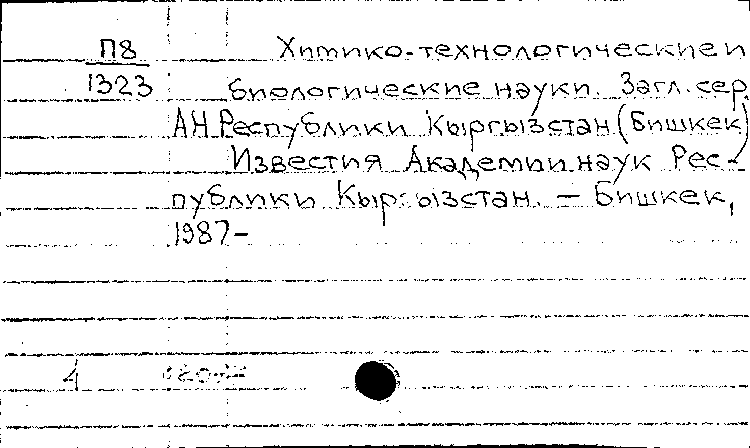 П8 Химико-технологические и
1323 биологические науки. Загл. сер.
АН Республики Кыргызстан (Бишкек)
Известия Академии наук Рес-
публики Кыргызстан. — Бишкек,
1987-
1